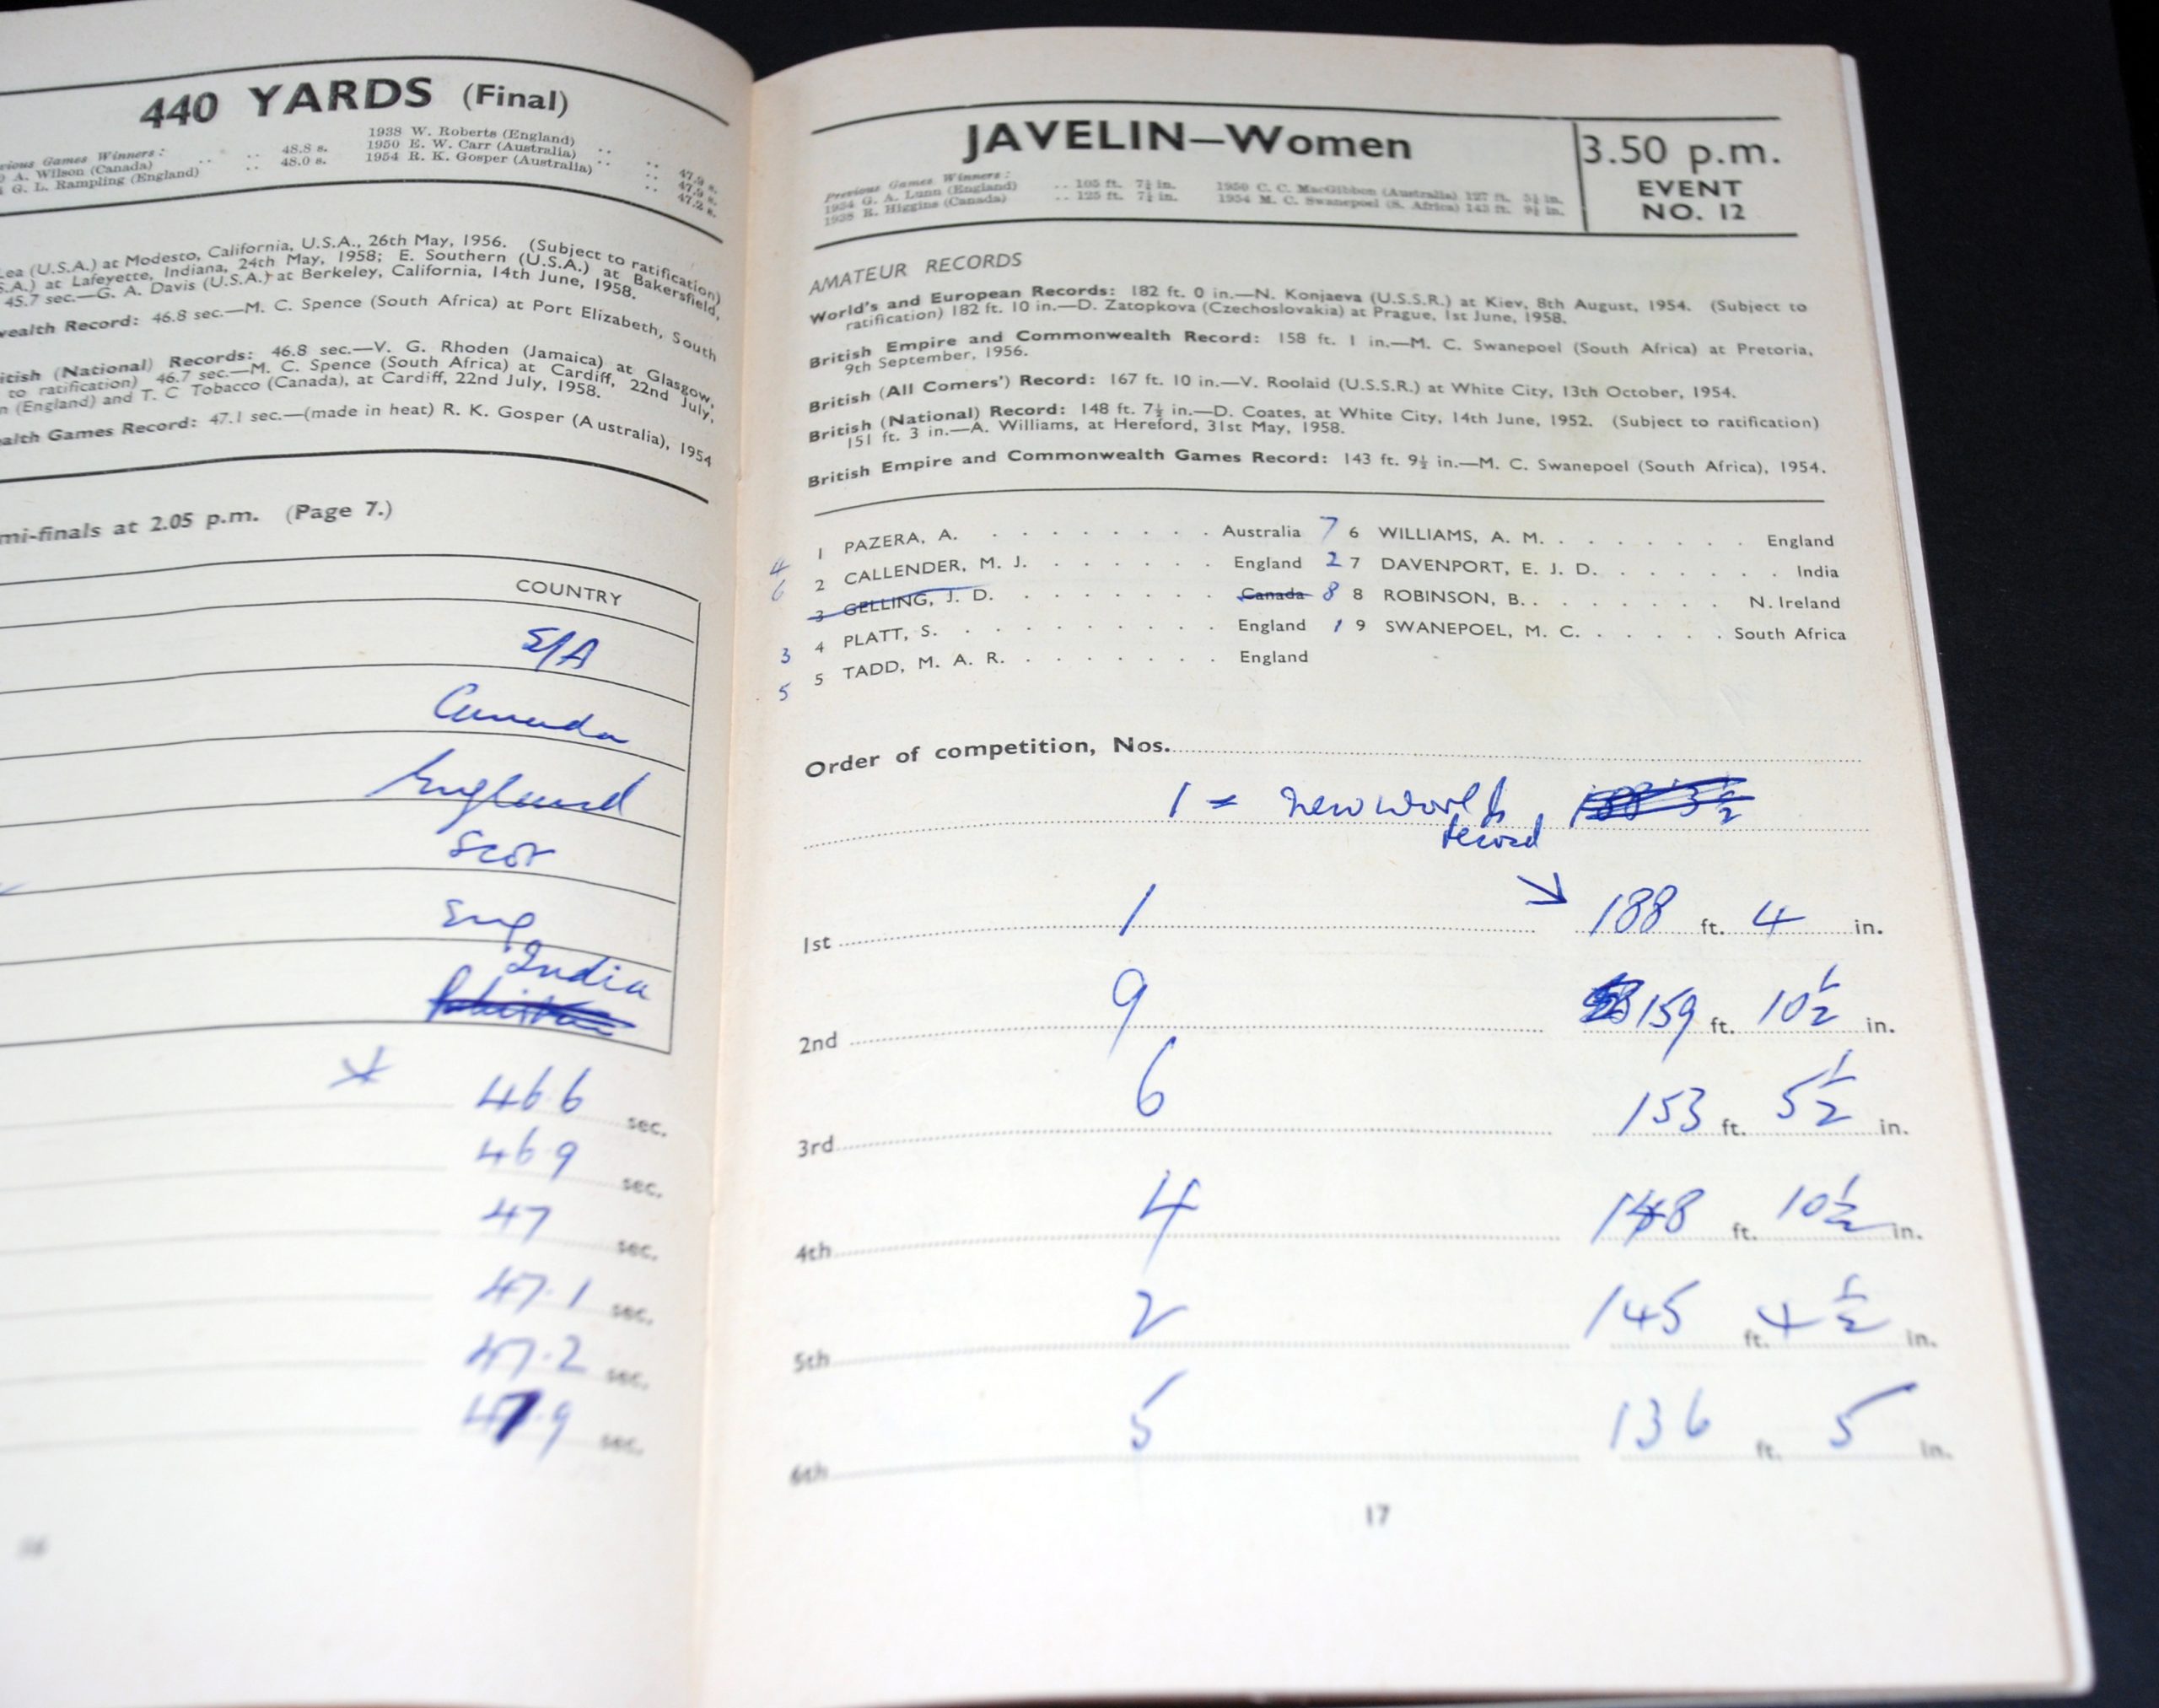 440 YARDS (Final)
vious Games Winners :
A. Wilson (Canada) .. .. 48.8 s.
G. L. Rampling (England) .. 48.0 s.
1938 W. Roberts (England) .. .. 47.9 s.
1950 E. W. Carr (Australia) .. .. 47.9 s.
1954 R. K. Gosper (Australia) .. .. 47.2 s.
Lea (U.S.A.) at Modesto, California, U.S.A., 26th May, 1956. (Subject to ratification)
S.A.) at Lafeyette, Indiana, 24th May, 1958; E. Southern (U.S.A.) at Bakersfield,
45.7 sec.—G. A. Davis (U.S.A.) at Berkeley, California, 14th June, 1958.
wealth Record: 46.8 sec.—M. C. Spence (South Africa) at Port Elizabeth, South
itish (National) Records: 46.8 sec.—V. G. Rhoden (Jamaica) at Glasgow,
to ratification) 46.7 sec.—M. C. Spence (South Africa) at Cardiff, 22nd July,
n (England) and T. C Tobacco (Canada), at Cardiff, 22nd July, 1958.
ealth Games Record: 47.1 sec.—(made in heat) R. K. Gosper (Australia), 1954
mi-finals at 2.05 p.m. (Page 7.)
COUNTRY
S/A
Canada
England
Scot
Eng
India
46.6 sec.
46.9 sec.
47 sec.
47.1 sec.
47.2 sec.
47.9 sec.
16
JAVELIN—Women
3.50 p.m.
EVENT
NO. 12
Previous Games Winners :
1934 G. A. Lunn (England) .. 105 ft. 7¼ in.
1938 R. Higgins (Canada) .. 125 ft. 7¼ in.
1950 C. C. MacGibbon (Australia) 127 ft. 5¼ in.
1954 M. C. Swanepoel (S. Africa) 143 ft. 9½ in.
AMATEUR RECORDS
World's and European Records: 182 ft. 0 in.—N. Konjaeva (U.S.S.R.) at Kiev, 8th August, 1954. (Subject to
ratification) 182 ft. 10 in.—D. Zatopkova (Czechoslovakia) at Prague, 1st June, 1958.
British Empire and Commonwealth Record: 158 ft. 1 in.—M. C. Swanepoel (South Africa) at Pretoria,
9th September, 1956.
British (All Comers') Record: 167 ft. 10 in.—V. Roolaid (U.S.S.R.) at White City, 13th October, 1954.
British (National) Record: 148 ft. 7½ in.—D. Coates, at White City, 14th June, 1952. (Subject to ratification)
151 ft. 3 in.—A. Williams, at Hereford, 31st May, 1958.
British Empire and Commonwealth Games Record: 143 ft. 9½ in.—M. C. Swanepoel (South Africa), 1954.
4 1 PAZERA, A. . . . . . . . . Australia
6 2 CALLENDER, M. J. . . . . . . England
3 GELLING, J. D. . . . . . . . Canada
3 4 PLATT, S. . . . . . . . . . England
5 5 TADD, M. A. R. . . . . . . . England
7 6 WILLIAMS, A. M. . . . . . . . England
2 7 DAVENPORT, E. J. D. . . . . . . India
8 8 ROBINSON, B. . . . . . . . N. Ireland
1 9 SWANEPOEL, M. C. . . . . . South Africa
Order of competition, Nos.
1 = new world 188 3½
record
1st 1 188 ft. 4 in.
2nd 9 159 ft. 10½ in.
3rd 6 153 ft. 5½ in.
4th 4 148 ft. 10½ in.
5th 2 145 ft. 4½ in.
6th 5 136 ft. 5 in.
17